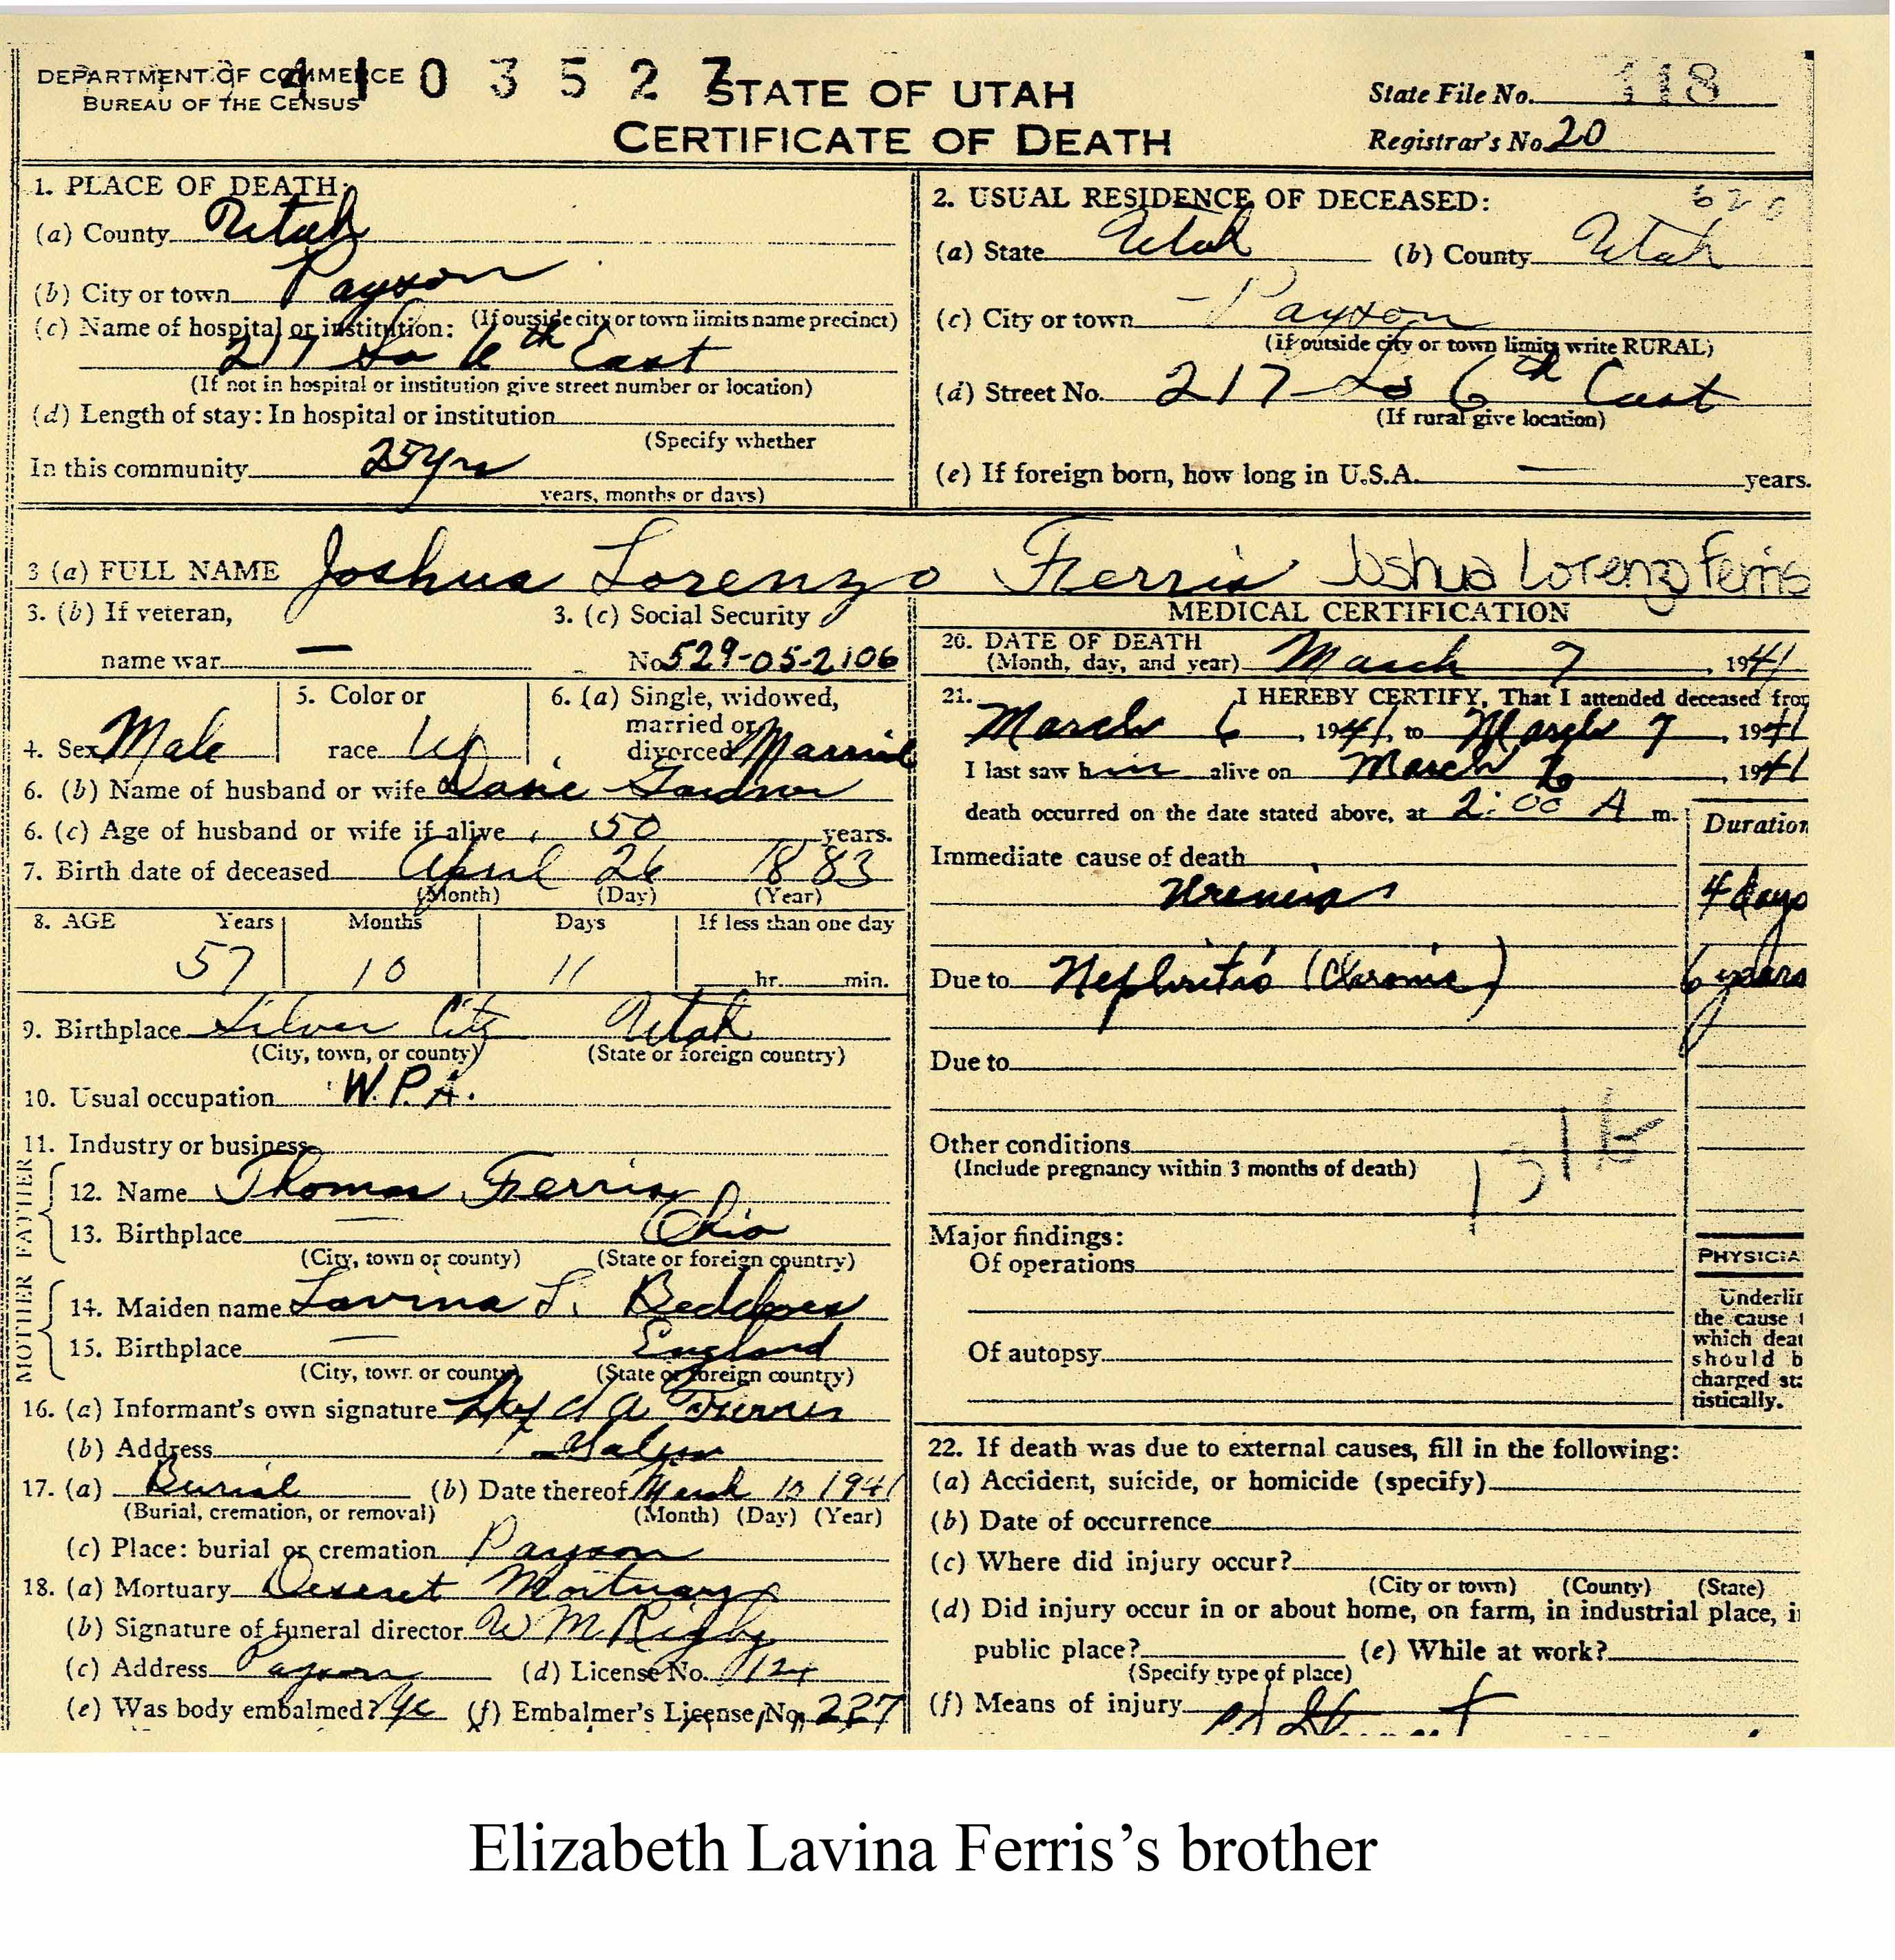 DEPARTMENT OF COMMERCE
BUREAU OF THE CENSUS
4 1 0 3 5 2 7
STATE OF UTAH
CERTIFICATE OF DEATH
State File No. 118
Registrar's No 20
1. PLACE OF DEATH:
(a) County Utah
(b) City or town Payson
(If outside city or town limits name precinct)
(c) Name of hospital or institution:
217 So 6th East
(If not in hospital or institution give street number or location)
(d) Length of stay: In hospital or institution
(Specify whether
In this community 25 yrs
years, months or days)
2. USUAL RESIDENCE OF DECEASED:
(a) State Utah (b) County Utah
(c) City or town Payson
(if outside city or town limits write RURAL)
(d) Street No. 217 So 6th East
(If rural give location)
(e) If foreign born, how long in U.S.A. — years.
3 (a) FULL NAME Joshua Lorenzo Ferris Joshua Lorenzo Ferris
3. (b) If veteran,
name war —
3. (c) Social Security
No 529-05-2106
4. Sex Male
5. Color or
race W
6. (a) Single, widowed,
married or
divorced Married
6. (b) Name of husband or wife Gardner
6. (c) Age of husband or wife if alive 50 years.
7. Birth date of deceased April 26 1883
(Month) (Day) (Year)
8. AGE Years Months Days If less than one day
57 10 11 hr. min.
9. Birthplace Silver City Utah
(City, town, or county) (State or foreign country)
10. Usual occupation W.P.A.
11. Industry or business
FATHER
12. Name Thomas Ferris
13. Birthplace — Ohio
(City, town or county) (State or foreign country)
MOTHER
14. Maiden name Lavina S. Beddoes
15. Birthplace — England
(City, town or county) (State or foreign country)
16. (a) Informant's own signature
(b) Address
17. (a) Burial (b) Date thereof March 10 1941
(Burial, cremation, or removal) (Month) (Day) (Year)
(c) Place: burial or cremation Payson
18. (a) Mortuary Deseret Mortuary
(b) Signature of funeral director W M Rigby
(c) Address Payson (d) License No.
(e) Was body embalmed? (f) Embalmer's License No. 227
MEDICAL CERTIFICATION
20. DATE OF DEATH
(Month, day, and year) March 7, 1941
21. I HEREBY CERTIFY, That I attended deceased from
March 6, 1941, to March 7, 1941
I last saw him alive on March 6, 1941
death occurred on the date stated above, at 2:00 A m.
Duration
Immediate cause of death
Uremia 4 days
Due to Nephritis (Chronic) 6 years
Due to
Other conditions
(Include pregnancy within 3 months of death)
Major findings:
Of operations
Of autopsy
PHYSICIA
Underlin
the cause t
which deat
should b
charged sta
tistically.
22. If death was due to external causes, fill in the following:
(a) Accident, suicide, or homicide (specify)
(b) Date of occurrence
(c) Where did injury occur?
(City or town) (County) (State)
(d) Did injury occur in or about home, on farm, in industrial place, i
public place? (e) While at work?
(Specify type of place)
(f) Means of injury
Elizabeth Lavina Ferris's brother